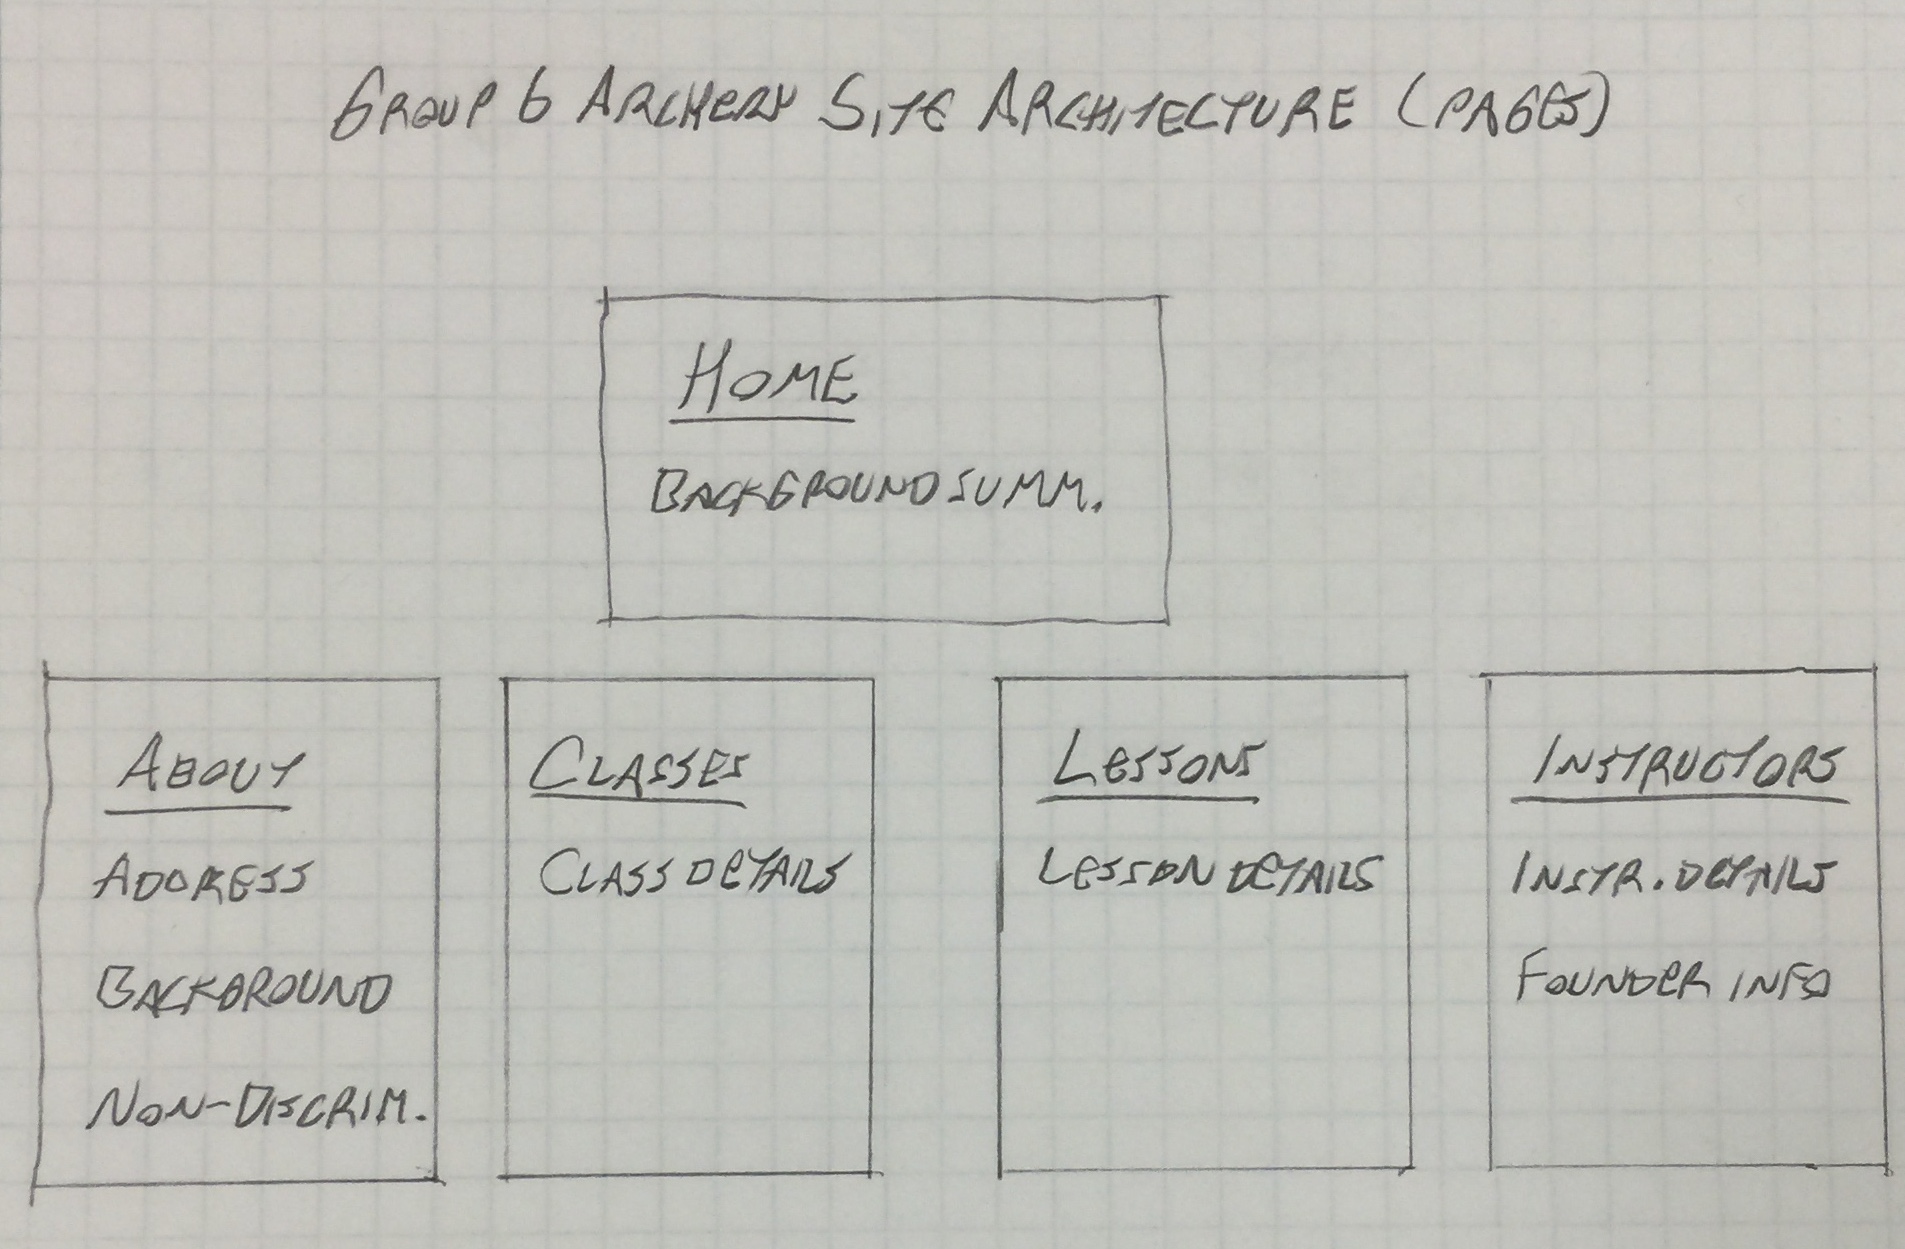 GROUP 6 ARCHERY SITE ARCHITECTURE (PAGES)
HOME
BACKGROUND SUMM.
ABOUT
ADDRESS
BACKGROUND
NON-DISCRIM.
CLASSES
CLASS DETAILS
LESSONS
LESSON DETAILS
INSTRUCTORS
INSTR. DETAILS
FOUNDER INFO